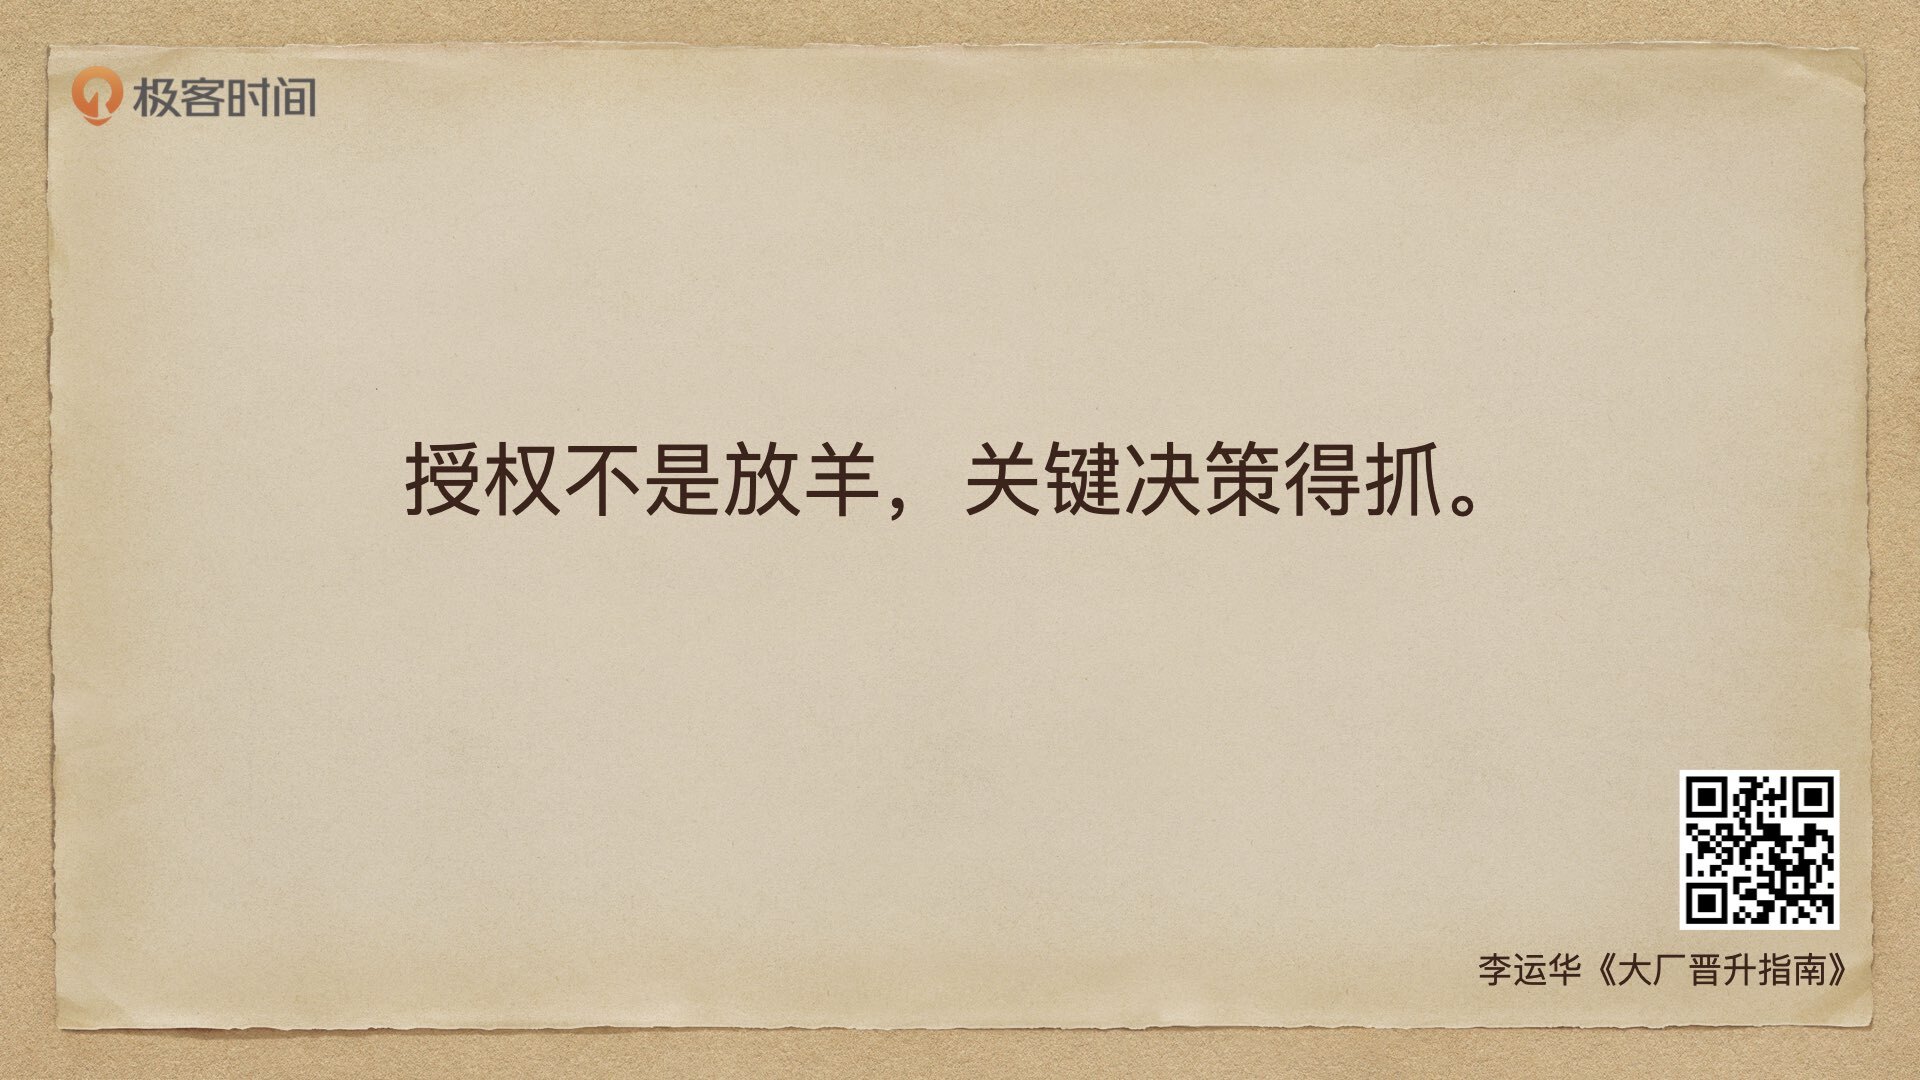 极客时间
授权不是放羊，关键决策得抓。
李运华《大厂晋升指南》